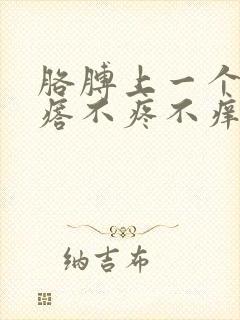 胳膊上一个
痞不疼不痒
纳吉布